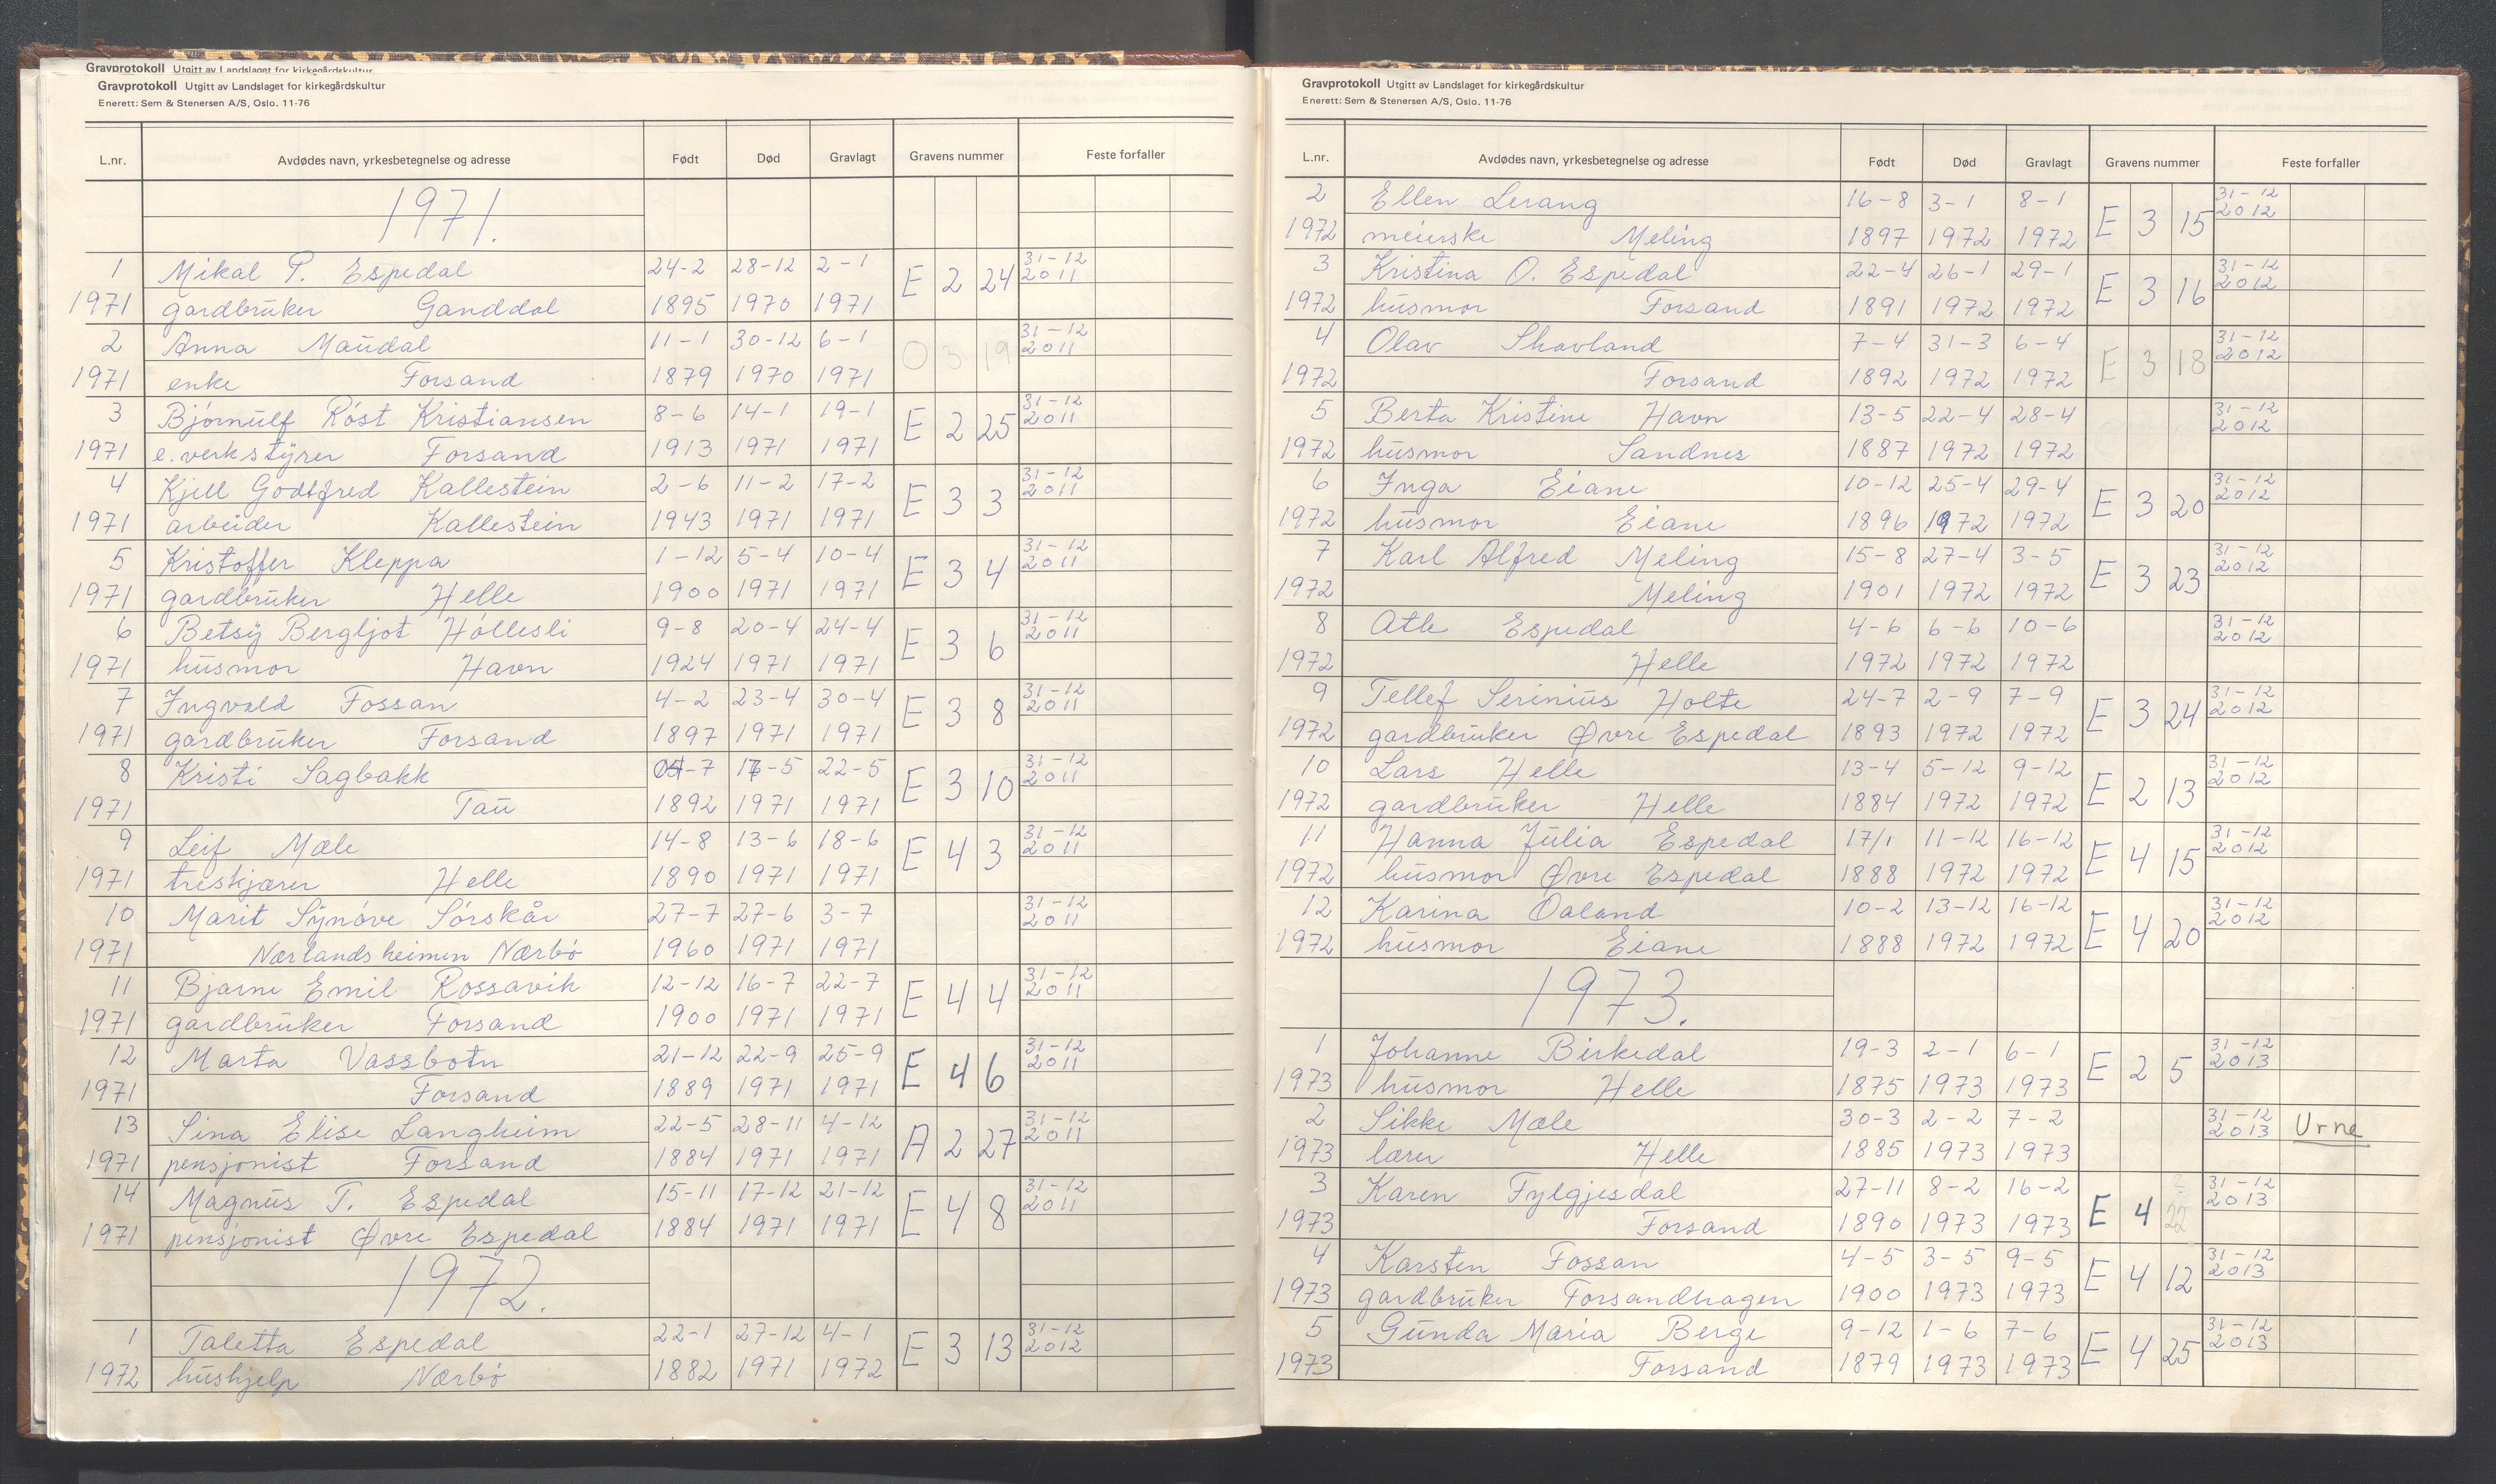 Gravprotokoll Utgitt av Landslaget for kirkegårdskultur
Gravprotokoll Utgitt av Landslaget for kirkegårdskultur
Enerett: Sem & Stenersen A/S, Oslo. 11-76
L.nr. Avdødes navn, yrkesbetegnelse og adresse Født Død Gravlagt Gravens nummer Feste forfaller
1971.
1 Mikal P. Espedal 24-2 28-12 2-1 E 2 24 31-12 2011
1971 gardbruker Ganddal 1895 1970 1971
2 Anna Maudal 11-1 30-12 6-1 O 3 19 31-12 2011
1971 enke Forsand 1879 1970 1971
3 Bjørnulf Røst Kristiansen 8-6 14-1 19-1 E 2 25 31-12 2011
1971 e.verkstyrer Forsand 1913 1971 1971
4 Kjell Godtfred Kallestein 2-6 11-2 17-2 E 3 3 31-12 2011
1971 arbeider Kallestein 1943 1971 1971
5 Kristoffer Kleppa 1-12 5-4 10-4 E 3 4 31-12 2011
1971 gardbruker Helle 1900 1971 1971
6 Betsy Bergljot Høllesli 9-8 20-4 24-4 E 3 6 31-12 2011
1971 husmor Havn 1924 1971 1971
7 Ingvald Fossan 4-2 23-4 30-4 E 3 8 31-12 2011
1971 gardbruker Forsand 1897 1971 1971
8 Kristi Sagbakk -7 -5 22-5 E 3 10 31-12 2011
1971 Tau 1892 1971 1971
9 Leif Mæle 14-8 13-6 18-6 E 4 3 31-12 2011
1971 treskjærer Helle 1890 1971 1971
10 Marit Synøve Sørskår 27-7 27-6 3-7 31-12 2011
1971 Nærlandsheimen Nærbø 1960 1971 1971
11 Bjarne Emil Rossavik 12-12 16-7 22-7 E 4 4 31-12 2011
1971 gardbruker Forsand 1900 1971 1971
12 Marta Vassbotn 21-12 22-9 25-9 E 4 6 31-12 2011
1971 Forsand 1889 1971 1971
13 Sina Elise Langheim 22-5 28-11 4-12 A 2 27 31-12 2011
1971 pensjonist Forsand 1884 1971 1971
14 Magnus T. Espedal 15-11 17-12 21-12 E 4 8 31-12 2011
1971 pensjonist Øvre Espedal 1884 1971 1971
1972.
1 Taletta Espedal 22-1 27-12 4-1 E 3 13 31-12 2012
1972 hushjelp Nærbø 1882 1971 1972
Gravprotokoll Utgitt av Landslaget for kirkegårdskultur
Enerett: Sem & Stenersen A/S, Oslo. 11-76
L.nr. Avdødes navn, yrkesbetegnelse og adresse Født Død Gravlagt Gravens nummer Feste forfaller
2 Ellen Lerang 16-8 3-1 8-1 E 3 15 31-12 2012
1972 meierske Meling 1897 1972 1972
3 Kristina O. Espedal 22-4 26-1 29-1 E 3 16 31-12 2012
1972 husmor Forsand 1891 1972 1972
4 Olav Skavland 7-4 31-3 6-4 E 3 18 31-12 2012
1972 Forsand 1892 1972 1972
5 Berta Kristine Havn 13-5 22-4 28-4 31-12 2012
1972 husmor Sandnes 1887 1972 1972
6 Inga Eiane 10-12 25-4 29-4 E 3 20 31-12 2012
1972 husmor Eiane 1896 1972 1972
7 Karl Alfred Meling 15-8 27-4 3-5 E 3 23 31-12 2012
1972 Meling 1901 1972 1972
8 Atle Espedal 4-6 6-6 10-6 31-12 2012
1972 Helle 1972 1972 1972
9 Tellef Serinius Holte 24-7 2-9 7-9 E 3 24 31-12 2012
1972 gardbruker Øvre Espedal 1893 1972 1972
10 Lars Helle 13-4 5-12 9-12 E 2 13 31-12 2012
1972 gardbruker Helle 1884 1972 1972
11 Hanna Julia Espedal 17/1 11-12 16-12 E 4 15 31-12 2012
1972 husmor Øvre Espedal 1888 1972 1972
12 Karina Oaland 10-2 13-12 16-12 E 4 20 31-12 2012
1972 husmor Eiane 1888 1972 1972
1973.
1 Johanne Birkedal 19-3 2-1 6-1 E 2 5 31-12 2013
1973 husmor Helle 1875 1973 1973
2 Sikke Mæle 30-3 2-2 7-2 31-12 2013 Urne
1973 lærer Helle 1885 1973 1973
3 Karen Fylgjesdal 27-11 8-2 16-2 E 4 22 31-12 2013
1973 Forsand 1890 1973 1973
4 Karsten Fossan 4-5 3-5 9-5 E 4 12 31-12 2013
1973 gardbruker Forsandhagen 1900 1973 1973
5 Gunda Maria Berge 9-12 1-6 7-6 E 4 25 31-12 2013
1973 Forsand 1879 1973 1973